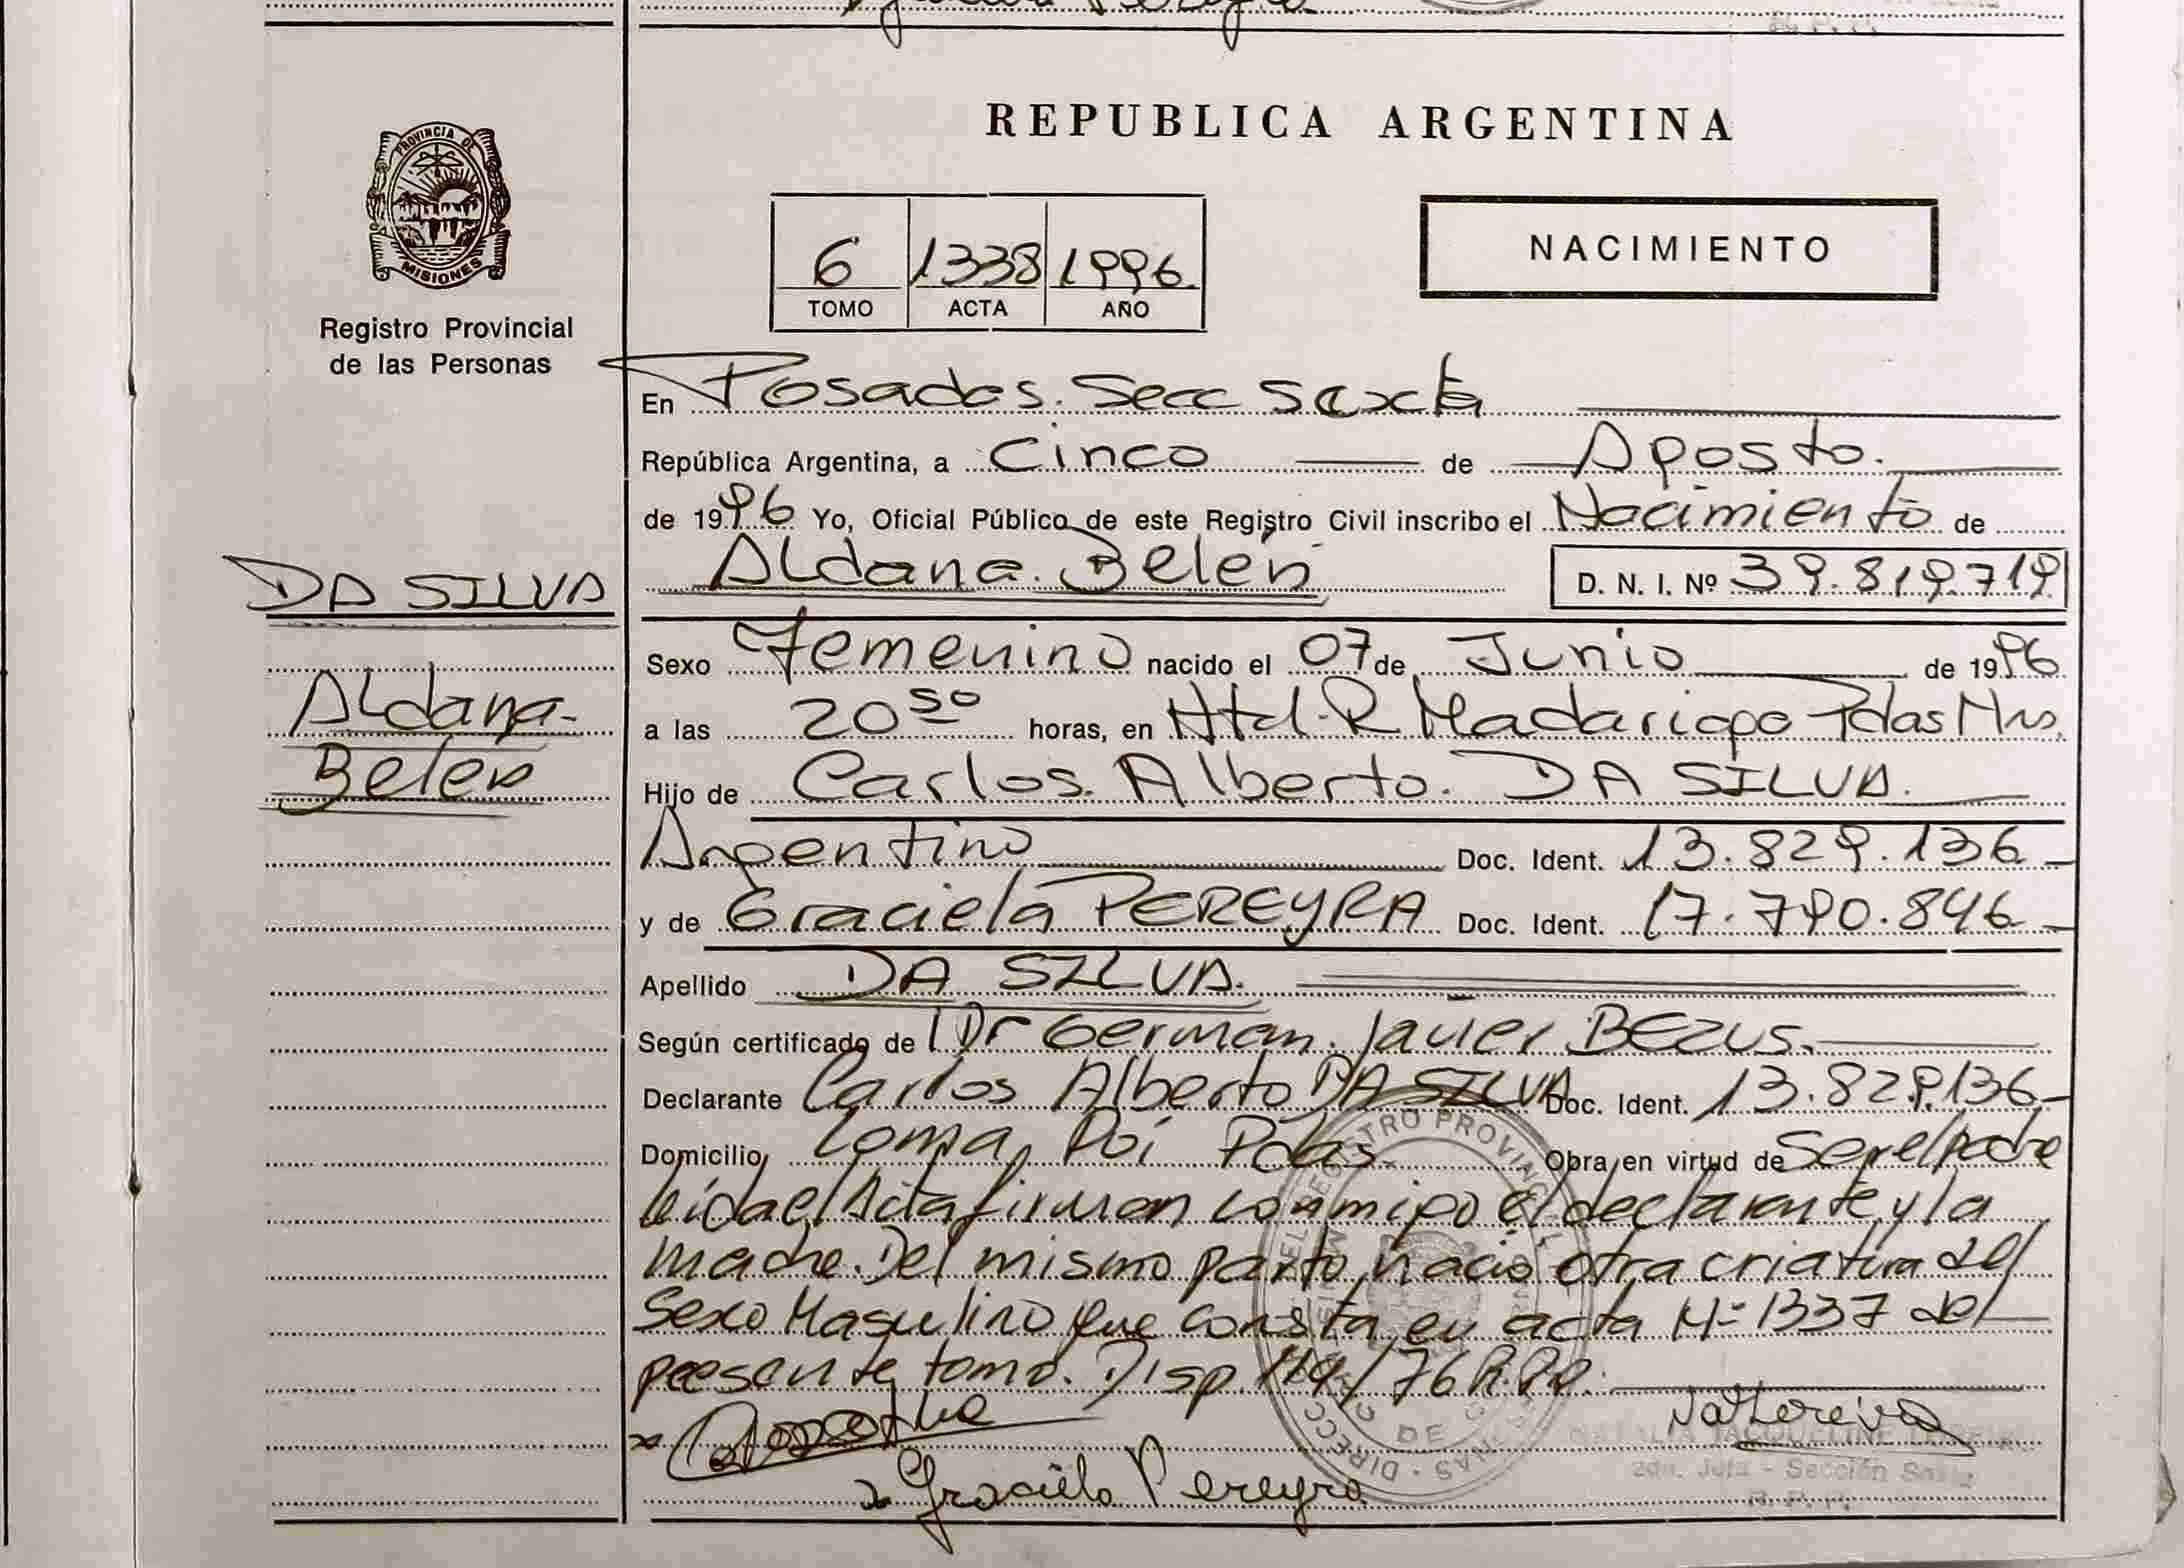 Graciela Pereyra
PROVINCIA DE
MISIONES
Registro Provincial
de las Personas
REPUBLICA ARGENTINA
6 1338 1996.
TOMO ACTA AÑO
NACIMIENTO
En Posadas. Secc Sexta
República Argentina, a Cinco de Agosto.
de 1996 Yo, Oficial Público de este Registro Civil inscribo el Nacimiento de
Aldana Belén D. N. I. Nº 39.819.719
DA SILVA
Aldana
Belen
Sexo Femenino nacido el 07 de Junio de 1996
a las 20 50 horas, en Htal. R Madariaga Pdas Mns.
Hijo de Carlos Alberto. DA SILVA.
Argentino Doc. Ident. 13.829.136
y de Graciela PEREYRA Doc. Ident. 17.790.846
Apellido DA SILVA.
Según certificado de Dr German Javier BEZUS.
Declarante Carlos Alberto DA SILVA Doc. Ident. 13.829.136
Domicilio Loma Poi Pdas Obra en virtud de Ser el padre
leida el Acta firman conmigo el declarante y la
madre. Del mismo parto nacio otra criatura del
Sexo Masculino que consta en acta Nº 1337 del
presente tomo. Disp 119/76 R.P.P.
Graciela Pereyra
REGISTRO PROVINCIAL DE
DIRECCION
NATALIA JACQUELINE
2da. Jefa - Sección Sexta
R. P. P.